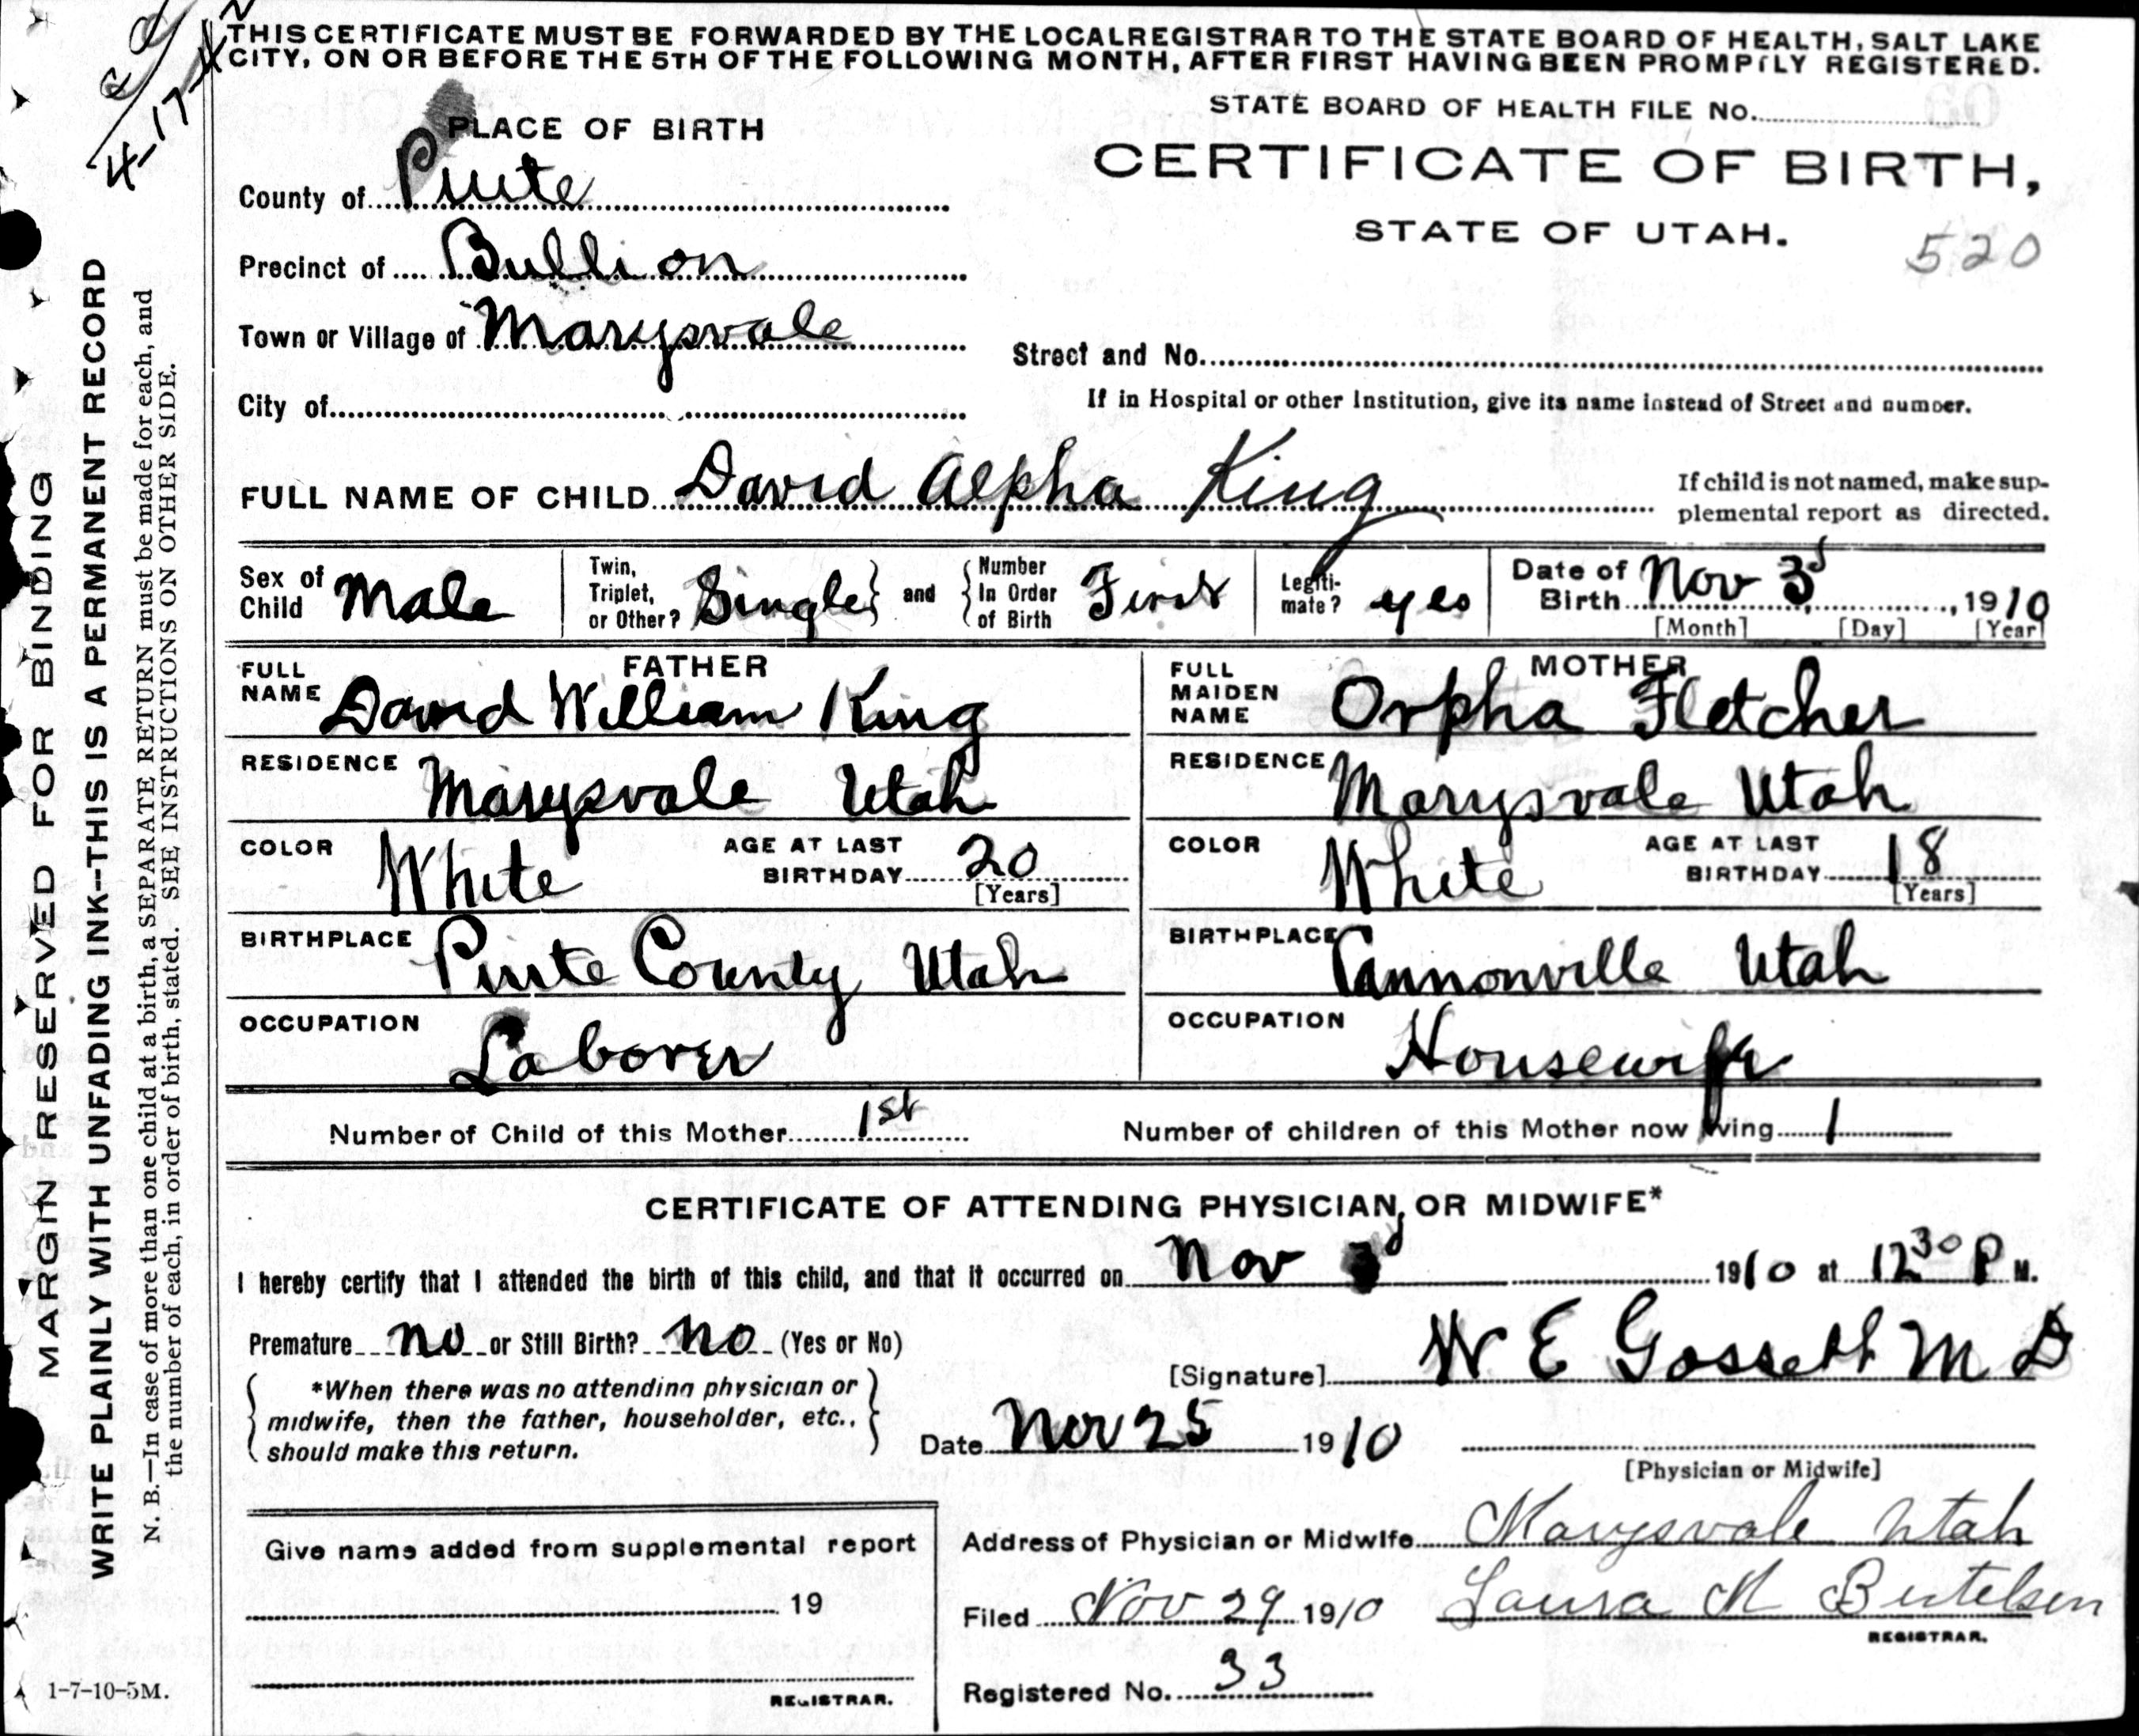 THIS CERTIFICATE MUST BE FORWARDED BY THE LOCAL REGISTRAR TO THE STATE BOARD OF HEALTH, SALT LAKE
CITY, ON OR BEFORE THE 5TH OF THE FOLLOWING MONTH, AFTER FIRST HAVING BEEN PROMPTLY REGISTERED.
4-17-
STATE BOARD OF HEALTH FILE No.
PLACE OF BIRTH
CERTIFICATE OF BIRTH,
STATE OF UTAH.
520
County of Piute
Precinct of Bullion
Town or Village of Marysvale
Street and No.
City of
If in Hospital or other Institution, give its name instead of Street and number.
FULL NAME OF CHILD David Alpha King
If child is not named, make sup-
plemental report as directed.
Sex of Child Male
Twin, Triplet, or Other? Single and Number In Order of Birth First
Legiti-mate? yes
Date of Birth Nov 3d, 1910
[Month] [Day] [Year]
FATHER
FULL NAME David William King
RESIDENCE Marysvale Utah
COLOR White AGE AT LAST BIRTHDAY 20 [Years]
BIRTHPLACE Piute County Utah
OCCUPATION Laborer
MOTHER
FULL MAIDEN NAME Orpha Fletcher
RESIDENCE Marysvale Utah
COLOR White AGE AT LAST BIRTHDAY 18 [Years]
BIRTHPLACE Cannonville Utah
OCCUPATION Housewife
Number of Child of this Mother 1st
Number of children of this Mother now living 1
CERTIFICATE OF ATTENDING PHYSICIAN, OR MIDWIFE*
I hereby certify that I attended the birth of this child, and that it occurred on Nov 3d 1910 at 12 30 P M.
Premature no or Still Birth? no (Yes or No)
[Signature] W E Gossett M D
*When there was no attending physician or
midwife, then the father, householder, etc.,
should make this return.
Date Nov 25 1910
[Physician or Midwife]
Give name added from supplemental report
19
REGISTRAR.
Address of Physician or Midwife Marysvale Utah
Filed Nov 29 1910 Laura M Bertelsen
REGISTRAR.
Registered No. 33
MARGIN RESERVED FOR BINDING
WRITE PLAINLY WITH UNFADING INK--THIS IS A PERMANENT RECORD
N. B.—In case of more than one child at a birth, a SEPARATE RETURN must be made for each, and
the number of each, in order of birth, stated. SEE INSTRUCTIONS ON OTHER SIDE.
1-7-10-5M.